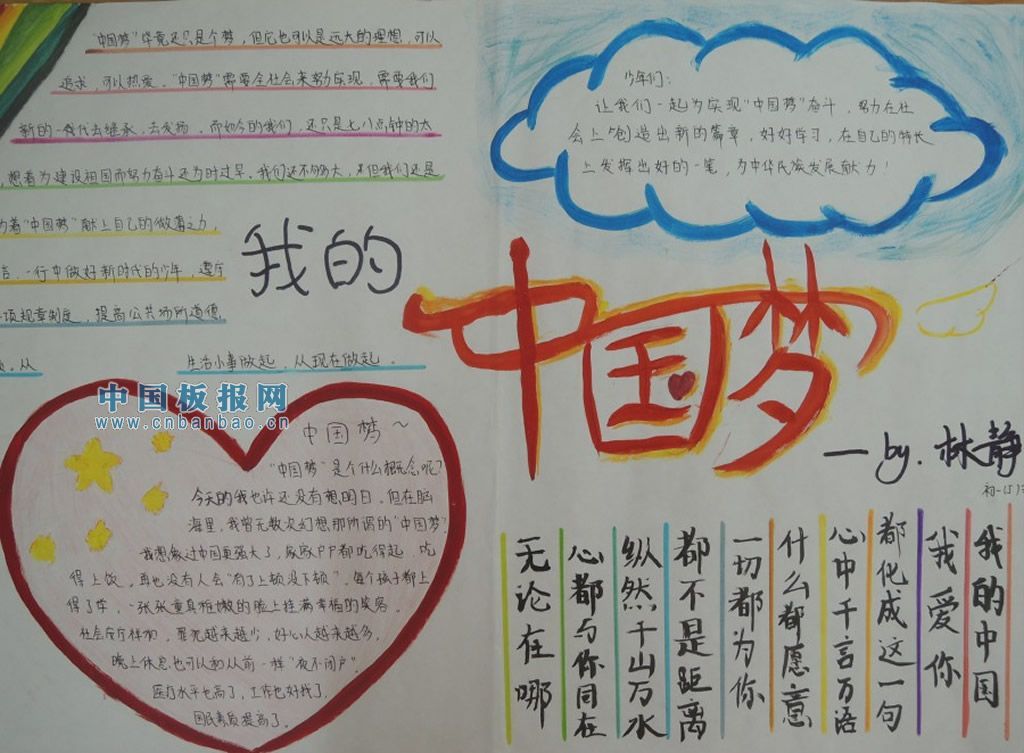 "中国梦"毕竟还只是个梦，但它也可以是远大的理想，可以
追求，可以热爱。"中国梦"需要全社会来努力实现，需要我们
新的一代去继承，去发扬，而如今的我们，还只是七八点钟的太
，想着为建设祖国而努力奋斗还为时过早。我们还不够大，但我们还是
着"中国梦"献上自己的微薄之力，
言一行中做好新时代的少年，遵守
项规章制度，提高公共场所道德，
从
生活小事做起，从现在做起。
少年们：
让我们一起为实现"中国梦"奋斗，努力在社
会上创造出新的篇章，好好学习，在自己的特长
上发挥出好的一笔，为中华民族发展献力！
我的
中国梦
—by.林静
初一
中国板报网
www.cnbanbao.cn
中国梦～
"中国梦"是个什么概念呢？
今天的我也许还没有想明白，但在脑
海里，我曾无数次幻想那所谓的"中国梦"
我想做过中国更强大了，家家户户都吃得起，吃
得上饭，再也没有人会"有了上顿没下顿"。每个孩子都上
得了学，一张张童真稚嫩的脸上挂满幸福的笑容。
社会安宁祥和，冤死越来越少，好心人越来越多，
晚上休息也可以和从前一样"夜不闭户"。
医疗水平也高了，工作也好找了，
国民素质提高了。
我的中国
我爱你
都化成这一句
心中千言万语
什么都愿意
一切都为你
都不是距离
纵然千山万水
心都与你同在
无论在哪